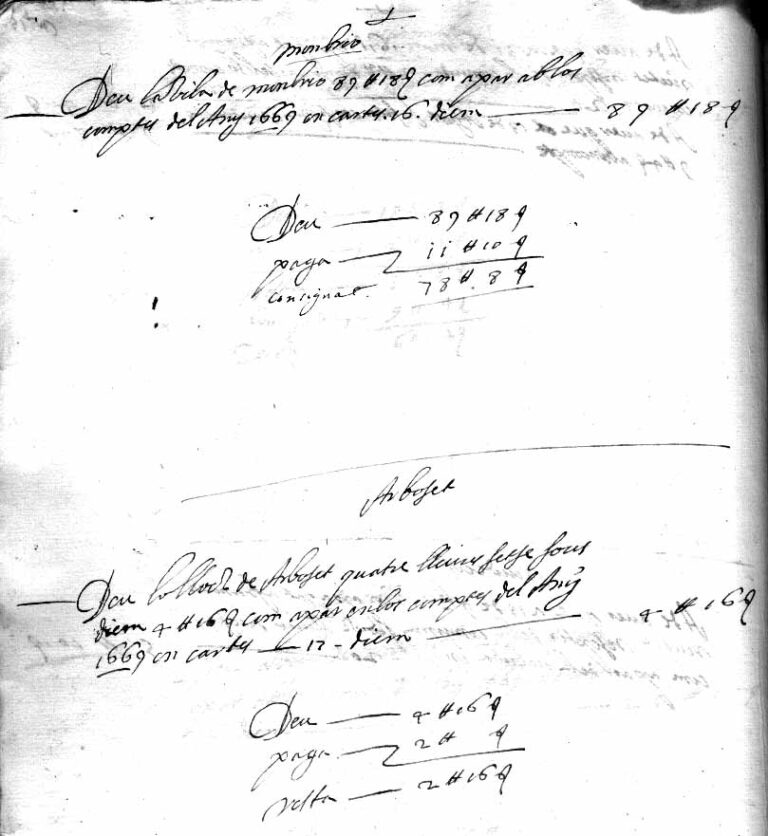 monbrio
Deu la Vila de monbrio 89 ℔ 18 ß com apar ab los
comptes del Any 1669 en cartes 16. diem 89 ℔ 18 ß
Deu 89 ℔ 18 ß
paga 11 ℔ 10 ß
consignat 78 ℔ 8 ß
Arboset
Deu lo lloch de Arboset quatre lliures setse sous
diem 4 ℔ 16 ß com apar en los comptes del Any
1669 en cartes 17 - diem 4 ℔ 16 ß
Deu 4 ℔ 16 ß
paga 2 ℔ ß
resta 2 ℔ 16 ß